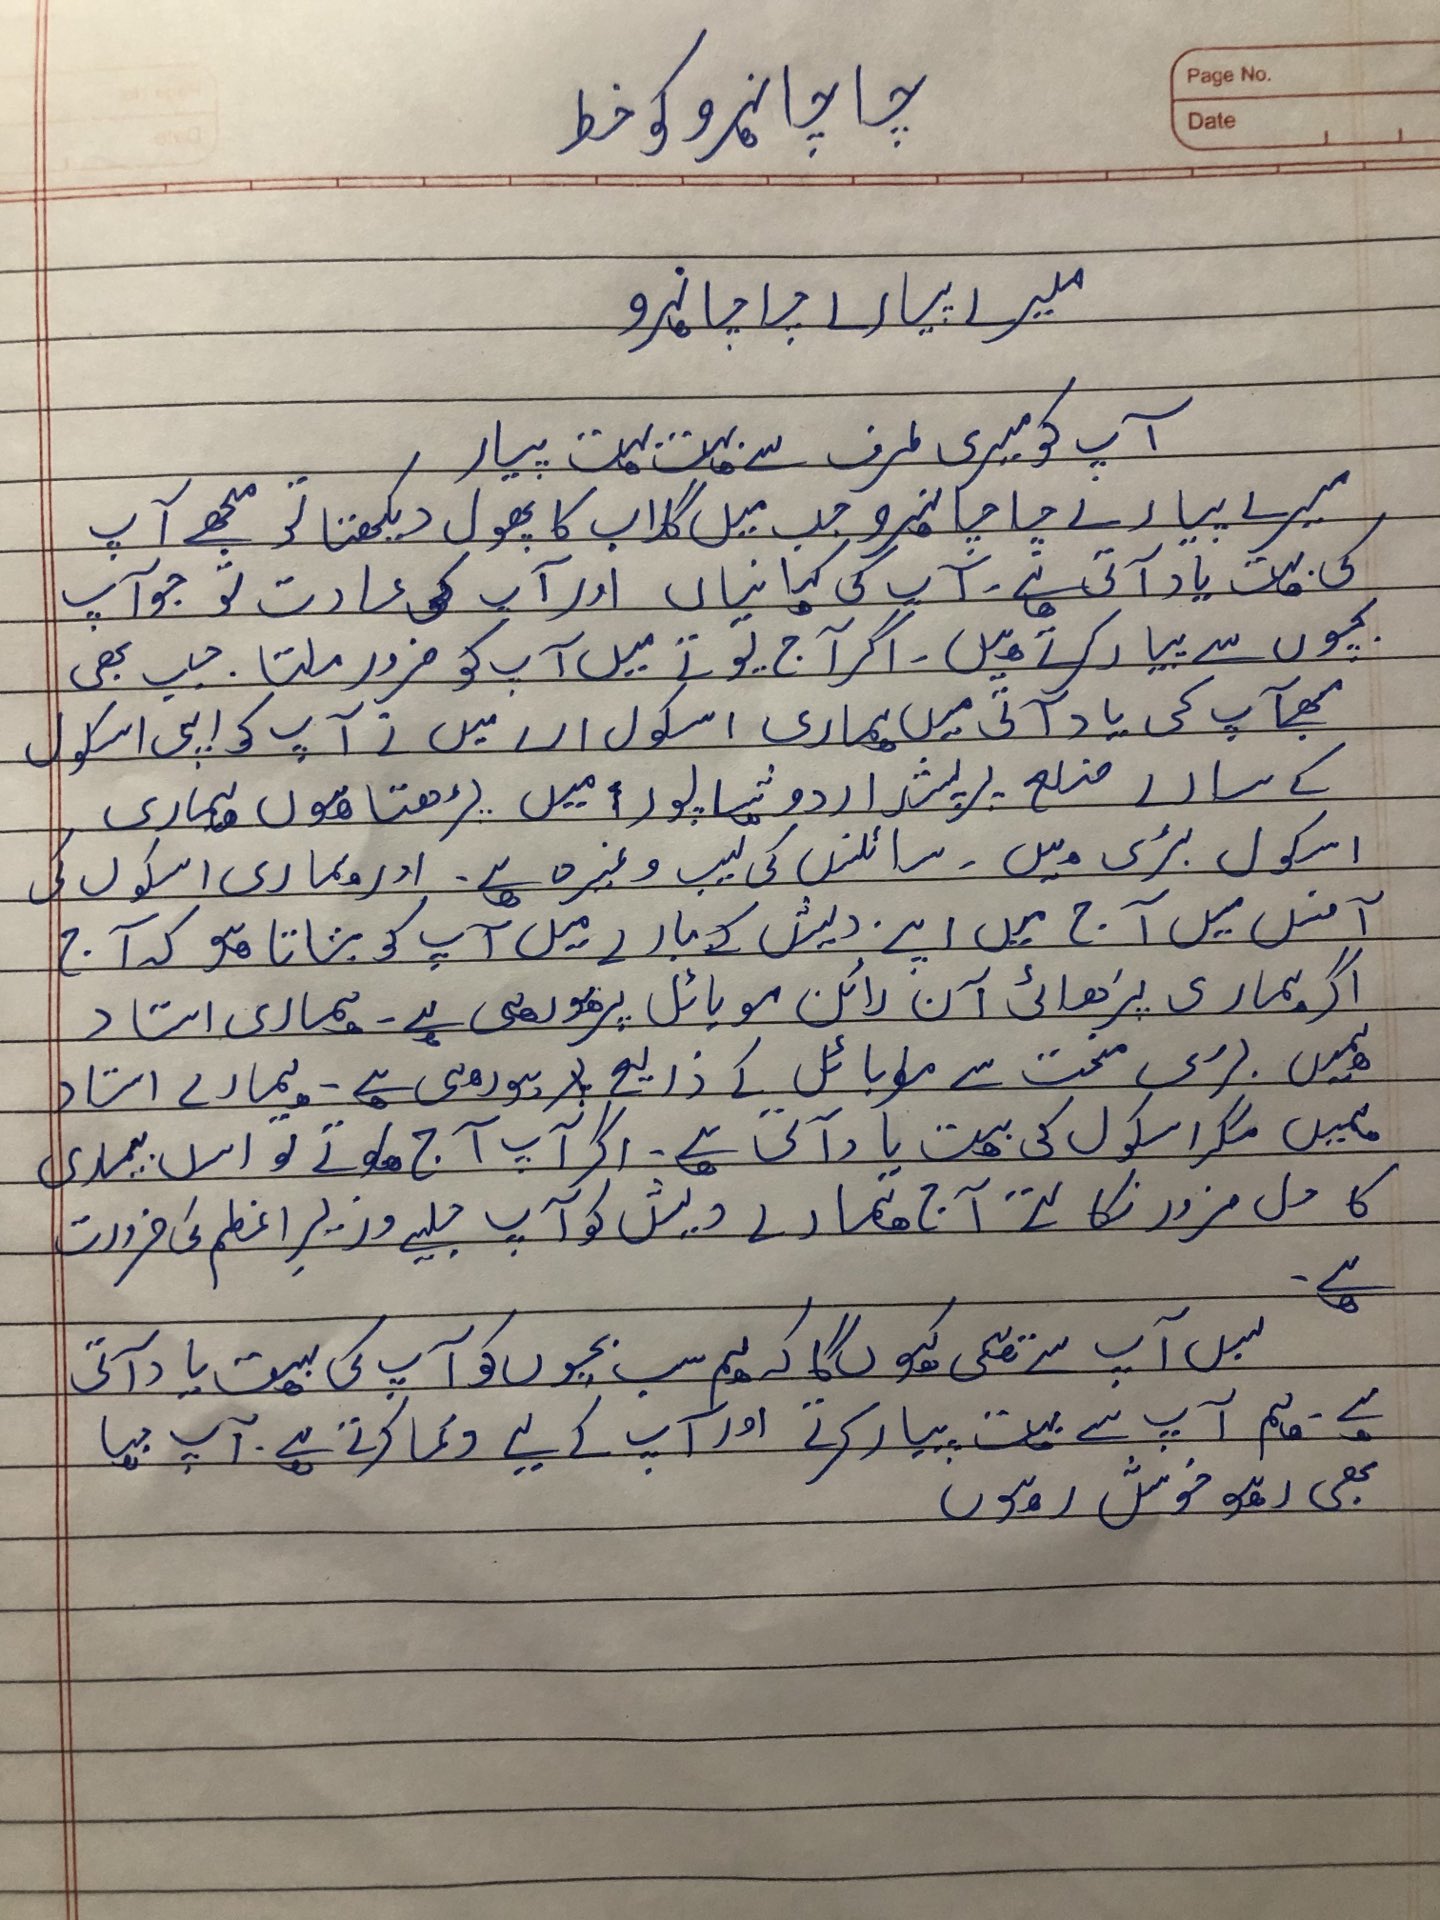 Page No.
Date
چاچا نہرو کو خط
میرے پیارے چاچا نہرو
آپ کو میری طرف سے بہت بہت پیار
میرے پیارے چاچا نہرو جب میں گلاب کا پھول دیکھتا تو مجھے آپ
کی بہت یاد آتی ہے۔ آپ کی کہانیاں اور آپ کی عادت تو جو آپ
بچوں سے پیار کرتے ہیں۔ اگر آج ہوتے میں آپ کو ضرور ملتا۔ جب بھی
مجھے آپ کی یاد آتی میں ہماری اسکول اور میں نے آپ کو اپنی اسکول
کے سارے ضلع پریشد اردو میں پڑھتا ھوں ہماری
اسکول بڑی ہیں۔ سائنس کی لیب وغیرہ ہے۔ اور ہماری اسکول کی
آفس میں آج میں اپنے دیش کے بارے میں آپ کو بتاتا ھو کہ آج
اگر ہماری پڑھائی آن لائن موبائل پر ھورھی ہے۔ ہماری استاد
ہمیں بڑی محنت سے موبائل کے ذریعے ہورھی ہے۔ ہمارے استاد
ہمیں مگر اسکول کی بہت یاد آتی ہے۔ اگر آپ آج ھوتے تو اس بیماری
کا حل ضرور نکالتے آج ہمارے دیش کو آپ جیسے وزیرِ اعظم کی ضرورت
ہے۔
بس آپ سے یہی کہوں گا کہ ہم سب بچوں کو آپ کی بہت یاد آتی
ہے۔ ہم آپ سے بہت پیار کرتے اور آپ کے لیے دعا کرتے ہے۔ آپ جہا
بھی رھو خوش رھوں